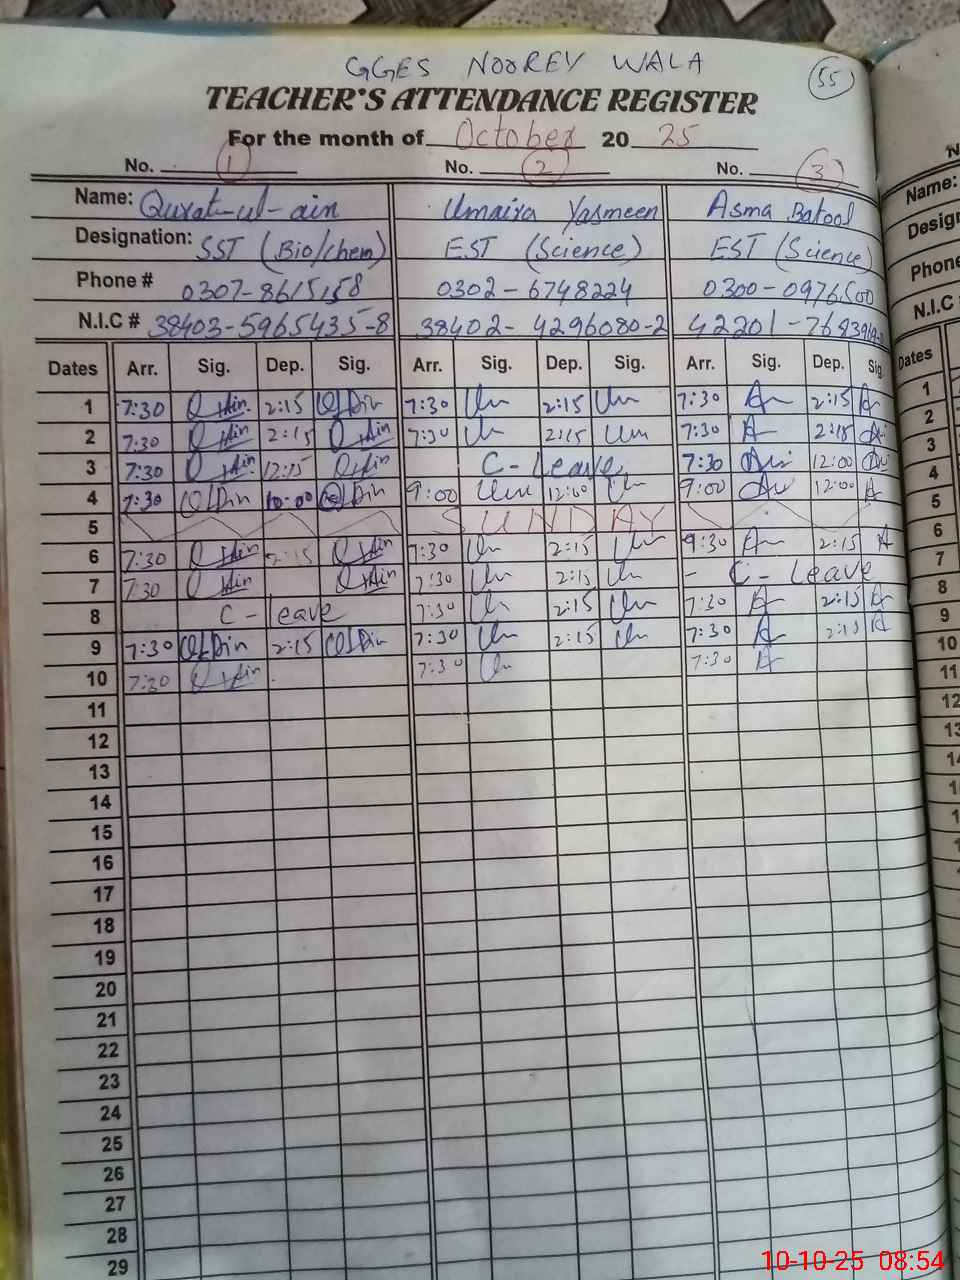 GGES NOOREY WALA
55
TEACHER'S ATTENDANCE REGISTER
For the month of October 2025
No. 1 No. 2 No. 3
Name: Qurat-ul-ain Umaira Yasmeen Asma Batool
Designation: SST (Bio/chem) EST (Science) EST (Science)
Phone # 0307-8615158 0302-6748224 0300-0976500
N.I.C # 38403-5965435-8 38402-4296080-2 42201-
Dates Arr. Sig. Dep. Sig. Arr. Sig. Dep. Sig. Arr. Sig. Dep. Sig
1 7:30 2:15 7:30 Um 2:15 Um 7:30 A 2:15 A
2 7:30 2:15 7:30 Um 2:15 Um 7:30 A 2:15
3 7:30 12:15 C-Leave 7:30 12:00
4 7:30 10:00 9:00 Um 12:00 Um 9:00 12:00 A
5 SUNDAY
6 7:30 2:15 7:30 Um 2:15 Um 9:30 A 2:15 A
7 7:30 7:30 Um 2:15 Um - C-Leave
8 C-Leave 7:30 Um 2:15 Um 7:30 A 2:15 A
9 7:30 2:15 7:30 Um 2:15 Um 7:30 A 2:15 A
10 7:30 7:30 Um 7:30 A
11
12
13
14
15
16
17
18
19
20
21
22
23
24
25
26
27
28
29
Name:
Desig
Phone
N.I.C
Dates
1
2
3
4
5
6
7
8
9
10
11
12
13
10-10-25 08:54